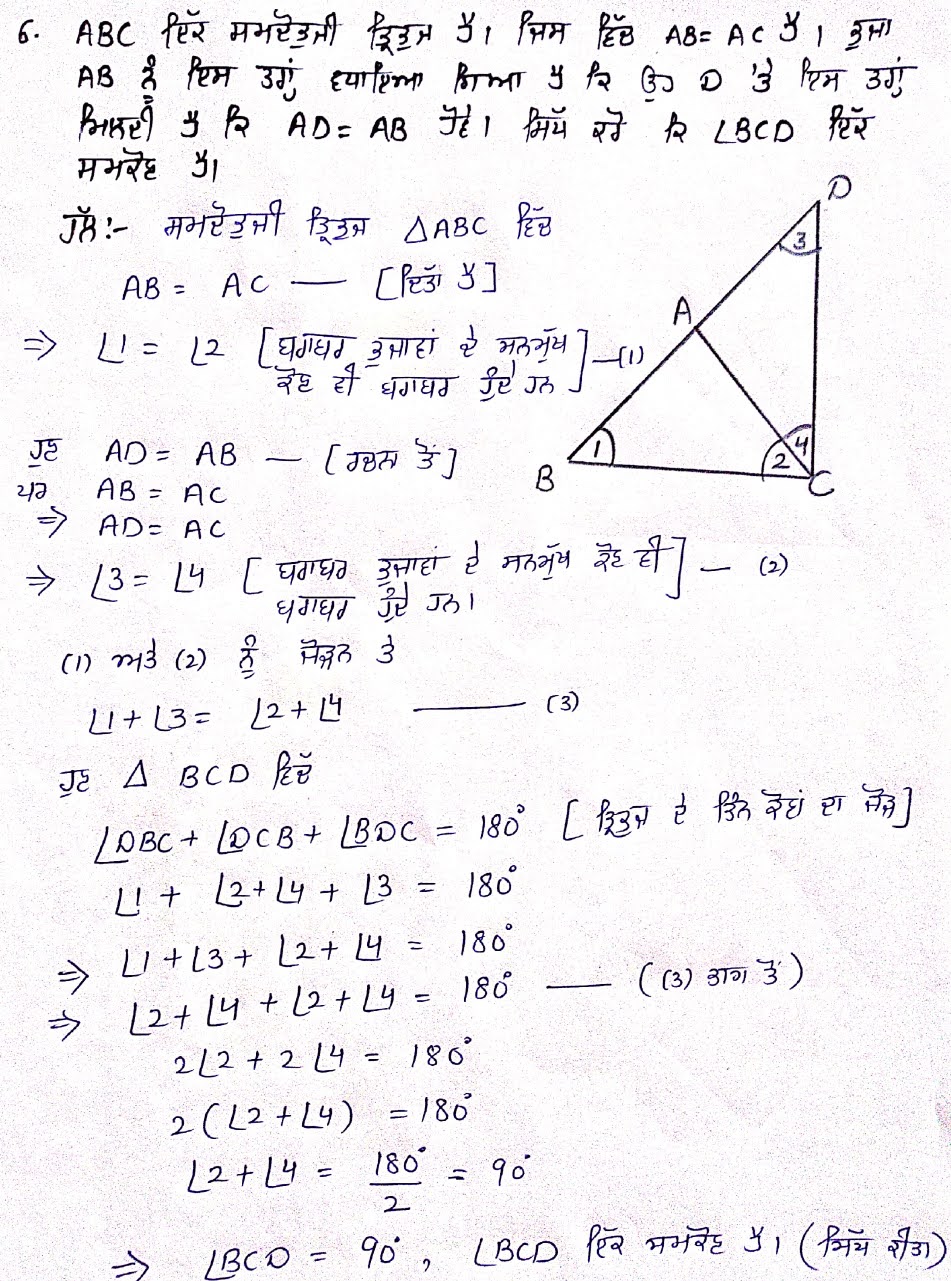 6. ABC ਇੱਕ ਸਮਦੋਭੁਜੀ ਤ੍ਰਿਭੁਜ ਹੈ। ਜਿਸ ਵਿੱਚ AB = AC ਹੈ। ਭੁਜਾ
AB ਨੂੰ ਇਸ ਤਰ੍ਹਾਂ ਵਧਾਇਆ ਗਿਆ ਹੈ ਕਿ ਉਹ D 'ਤੇ ਇਸ ਤਰ੍ਹਾਂ
ਮਿਲਦੀ ਹੈ ਕਿ AD = AB ਹੋਵੇ। ਸਿੱਧ ਕਰੋ ਕਿ ∠BCD ਇੱਕ
ਸਮਕੋਣ ਹੈ।
ਹੱਲ:- ਸਮਦੋਭੁਜੀ ਤ੍ਰਿਭੁਜ △ABC ਵਿੱਚ
AB = AC — [ਦਿੱਤਾ ਹੈ]
⇒ ∠1 = ∠2 [ਬਰਾਬਰ ਭੁਜਾਵਾਂ ਦੇ ਸਨਮੁੱਖ
ਕੋਣ ਵੀ ਬਰਾਬਰ ਹੁੰਦੇ ਹਨ] —(1)
ਹੁਣ AD = AB — [ਰਚਨਾ ਤੋਂ]
ਪਰ AB = AC
⇒ AD = AC
⇒ ∠3 = ∠4 [ਬਰਾਬਰ ਭੁਜਾਵਾਂ ਦੇ ਸਨਮੁੱਖ ਕੋਣ ਵੀ
ਬਰਾਬਰ ਹੁੰਦੇ ਹਨ।] — (2)
(1) ਅਤੇ (2) ਨੂੰ ਜੋੜਨ ਤੇ
∠1 + ∠3 = ∠2 + ∠4 —— (3)
ਹੁਣ △ BCD ਵਿੱਚ
∠DBC + ∠DCB + ∠BDC = 180° [ਤ੍ਰਿਭੁਜ ਦੇ ਤਿੰਨ ਕੋਣਾਂ ਦਾ ਜੋੜ]
∠1 + ∠2 + ∠4 + ∠3 = 180°
⇒ ∠1 + ∠3 + ∠2 + ∠4 = 180°
⇒ ∠2 + ∠4 + ∠2 + ∠4 = 180° —— ((3) ਭਾਗ ਤੋਂ)
2∠2 + 2∠4 = 180°
2(∠2 + ∠4) = 180°
∠2 + ∠4 = 180°/2 = 90°
⇒ ∠BCD = 90°, ∠BCD ਇੱਕ ਸਮਕੋਣ ਹੈ। (ਸਿੱਧ ਕੀਤਾ)
D
3
A
B
1
2
4
C